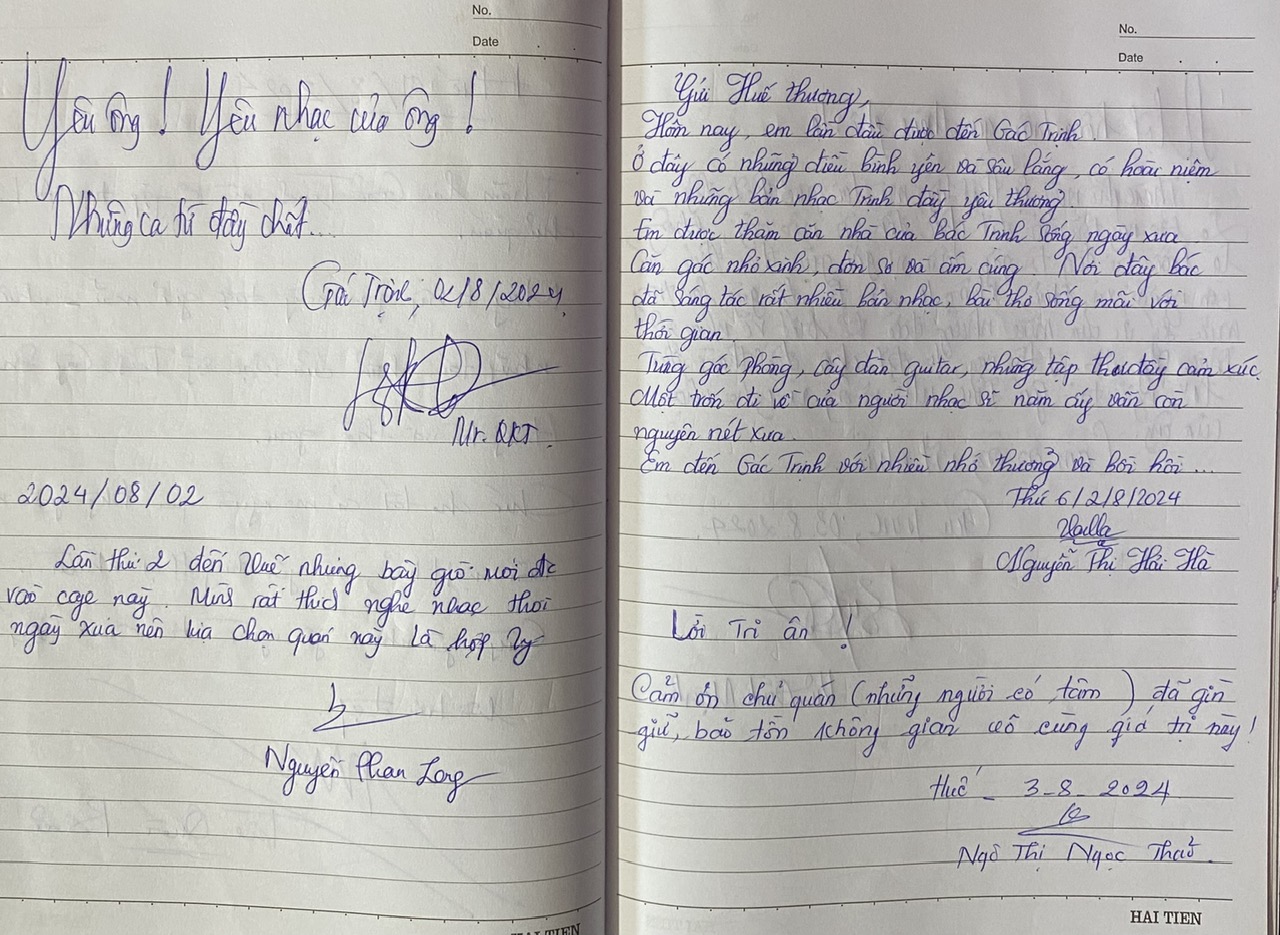 No.
Date
Yêu ông! Yêu nhạc của ông!
Những ca từ đầy chất...
Gác Trịnh, 02/8/2024
Mr. QKT.
2024/08/02
Lần thứ 2 đến Huế nhưng bây giờ mới đc
vào cafe này. Mình rất thích nghe nhạc thời
ngày xưa nên lựa chọn quán này là hợp lý
Nguyễn Phan Long
HAI TIEN
No.
Date
Gửi Huế thương,
Hôm nay, em lần đầu được đến Gác Trịnh.
Ở đây có những điều bình yên và sâu lắng, có hoài niệm
và những bản nhạc Trịnh đầy yêu thương.
Em được thăm căn nhà của bác Trịnh sống ngày xưa.
Căn gác nhỏ xinh, đơn sơ và ấm cúng. Nơi đây bác
đã sáng tác rất nhiều bản nhạc, bài thơ sống mãi với
thời gian.
Từng góc phòng, cây đàn guitar, những tập thơ đầy cảm xúc.
Một trốn đi về của người nhạc sĩ năm ấy vẫn còn
nguyên nét xưa.
Em đến Gác Trịnh với nhiều nhớ thương và bồi hồi...
Thứ 6/2/8/2024
Nguyễn Thị Hải Hà
Lời Tri ân!
Cảm ơn chủ quán (những người có tâm) đã gìn
giữ, bảo tồn không gian vô cùng giá trị này!
Huế - 3-8-2024
Ngô Thị Ngọc Thảo.
HAI TIEN